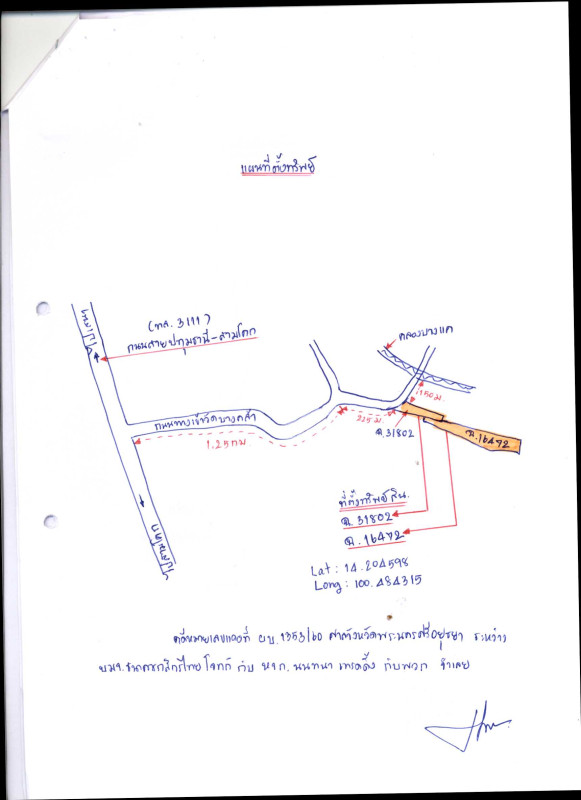 แผนที่ตั้งทรัพย์
(ทล. 3111)
ถนนสายปทุมธานี-สามโคก
คลองบางแค
ถนนทางเข้าวัดบางคล้า
1.25 กม
225 ม.
150 ม.
ฉ.31802
ฉ.16472
ที่ตั้งทรัพย์สิน.
ฉ.31802
ฉ.16472
Lat : 14.204598
Long : 100.484315
คดีหมายเลขแดงที่ ผบ.1353/60 ศาลจังหวัดพระนครศรีอยุธยา ระหว่าง
บมจ.ธนาคารกสิกรไทย โจทก์ กับ หจก. นนทนา เทรดดิ้ง กับพวก จำเลย